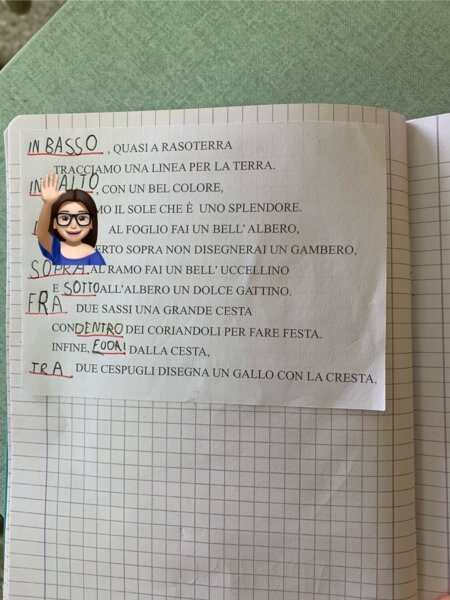 IN BASSO, QUASI A RASOTERRA
TRACCIAMO UNA LINEA PER LA TERRA.
IN ALTO, CON UN BEL COLORE,
IL SOLE CHE È UNO SPLENDORE.
AL FOGLIO FAI UN BELL' ALBERO,
SOPRA NON DISEGNERAI UN GAMBERO,
SOPRA AL RAMO FAI UN BELL' UCCELLINO
E SOTTO ALL'ALBERO UN DOLCE GATTINO.
FRA DUE SASSI UNA GRANDE CESTA
CON DENTRO DEI CORIANDOLI PER FARE FESTA.
INFINE, FUORI DALLA CESTA,
TRA DUE CESPUGLI DISEGNA UN GALLO CON LA CRESTA.